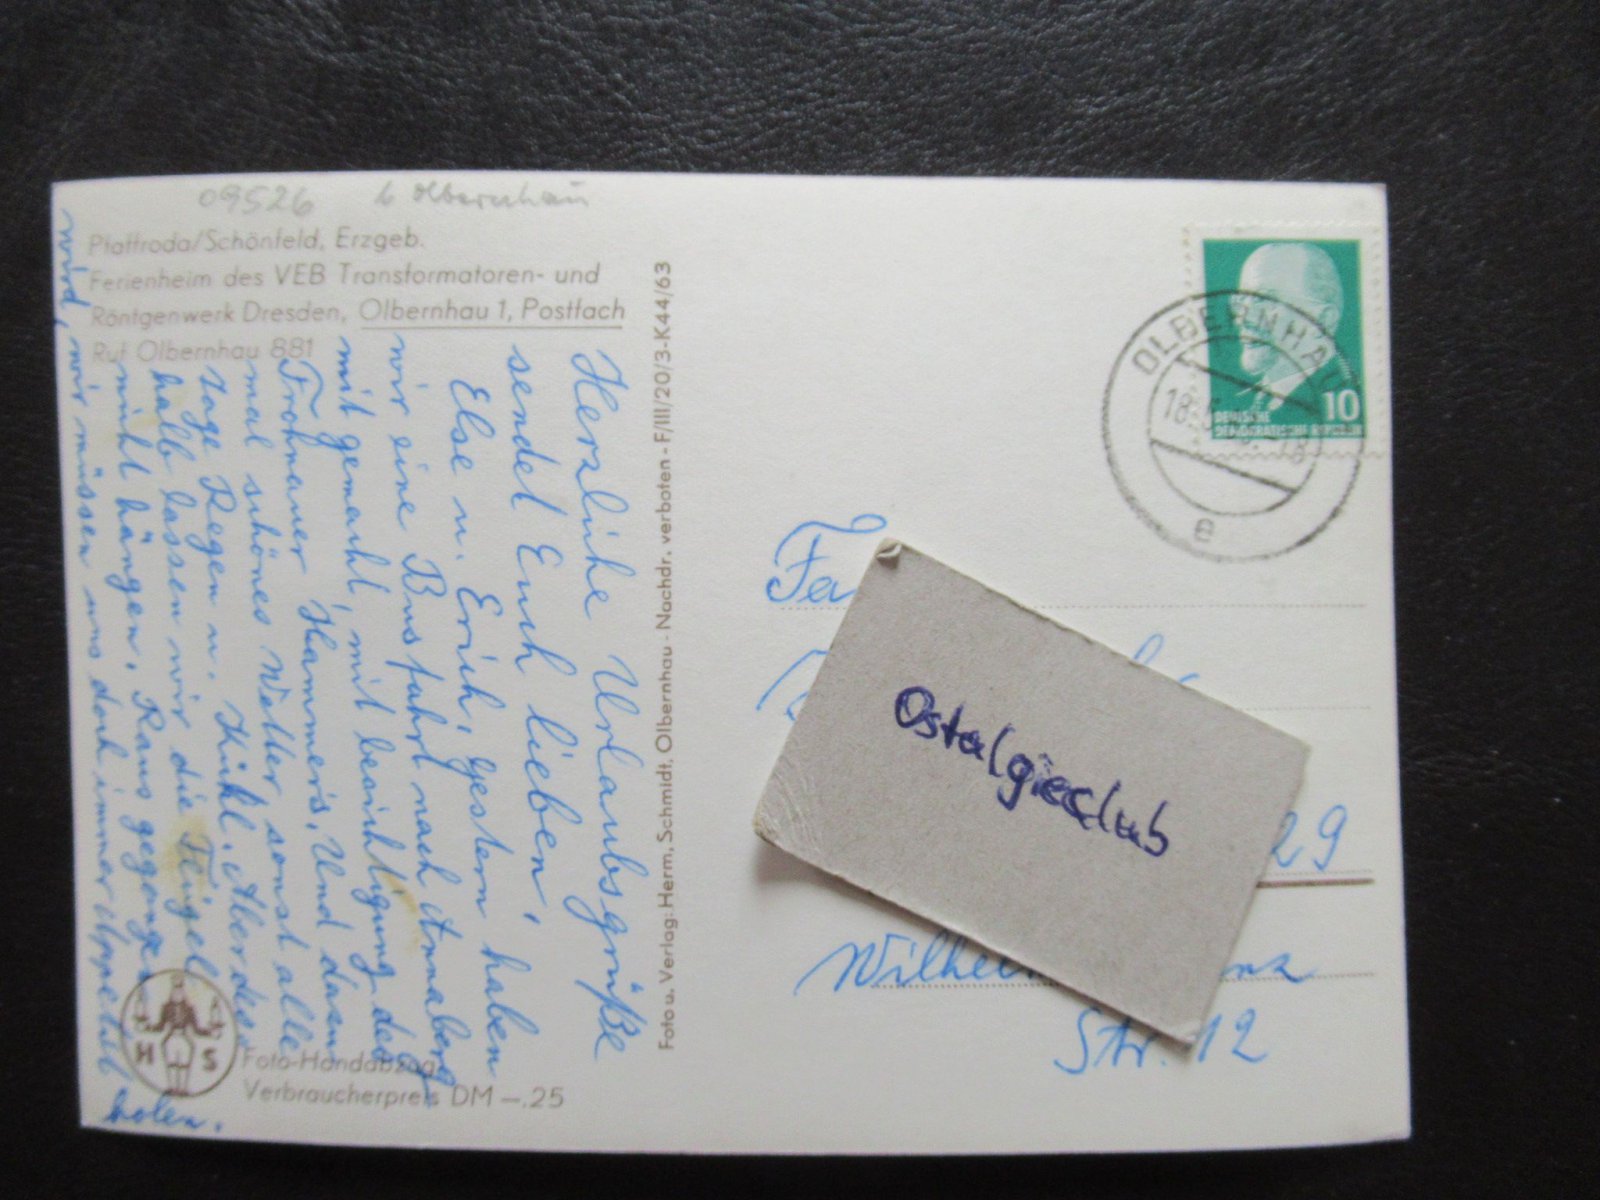 09526 b Olbernhau
Pfaffroda/Schönfeld, Erzgeb.
Ferienheim des VEB Transformatoren- und
Röntgenwerk Dresden, Olbernhau 1, Postfach
Ruf Olbernhau 881
Herzliche Urlaubsgrüße
sendet Euch lieben,
Else u. Erich, gestern haben
wir eine Busfahrt nach Annaberg
mit gemacht, mit besichtigung des
Frohnauer Hammers. Und dazu
mal schönes Wetter, sonst alle
Tage Regen u. Kühl. Aber des
halb lassen wir die Flügel
nicht hängen. Raus gegangen
wird, wir müssen uns doch immer Appetit
holen.
H S
Foto-Handabzug
Verbraucherpreis DM —.25
Foto u. Verlag: Herm. Schmidt, Olbernhau - Nachdr. verboten - F/III/20/3-K44/63
OLBERNHAU
18
e
10
DEUTSCHE
DEMOKRATISCHE REPUBLIK
Fa
Ostalgieclub
29
Wilhelm
Str. 12